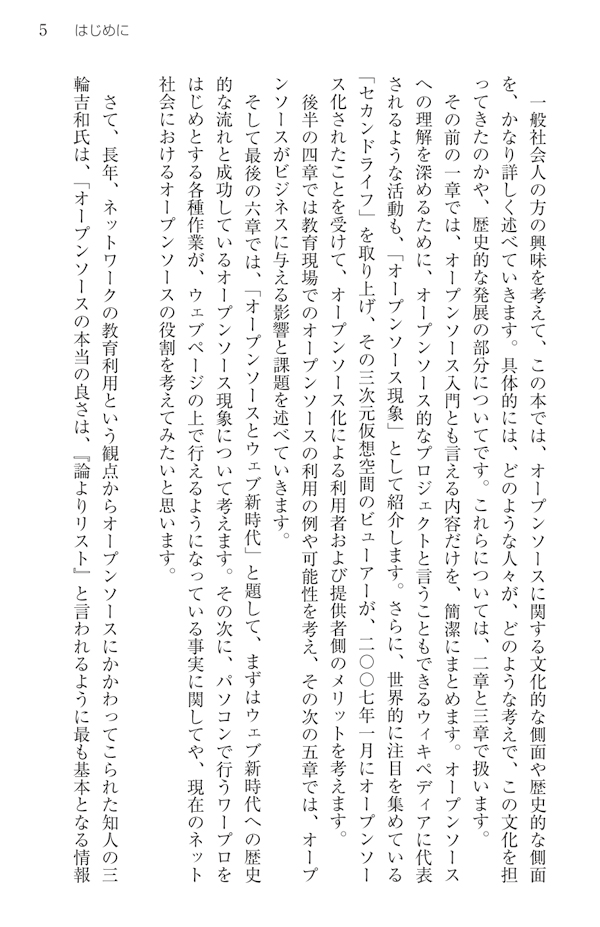 5 はじめに
一般社会人の方の興味を考えて、この本では、オープンソースに関する文化的な側面や歴史的な側面
を、かなり詳しく述べていきます。具体的には、どのような人々が、どのような考えで、この文化を担
ってきたのかや、歴史的な発展の部分についてです。これらについては、二章と三章で扱います。
その前の一章では、オープンソース入門とも言える内容だけを、簡潔にまとめます。オープンソース
への理解を深めるために、オープンソース的なプロジェクトと言うこともできるウィキペディアに代表
されるような活動も、「オープンソース現象」として紹介します。さらに、世界的に注目を集めている
「セカンドライフ」を取り上げ、その三次元仮想空間のビューアーが、二〇〇七年一月にオープンソー
ス化されたことを受けて、オープンソース化による利用者および提供者側のメリットを考えます。
後半の四章では教育現場でのオープンソースの利用の例や可能性を考え、その次の五章では、オープ
ンソースがビジネスに与える影響と課題を述べていきます。
そして最後の六章では、「オープンソースとウェブ新時代」と題して、まずはウェブ新時代への歴史
的な流れと成功しているオープンソース現象について考えます。その次に、パソコンで行うワープロを
はじめとする各種作業が、ウェブページの上で行えるようになっている事実に関してや、現在のネット
社会におけるオープンソースの役割を考えてみたいと思います。
さて、長年、ネットワークの教育利用という観点からオープンソースにかかわってこられた知人の三
輪吉和氏は、「オープンソースの本当の良さは、『論よりリスト』と言われるように最も基本となる情報